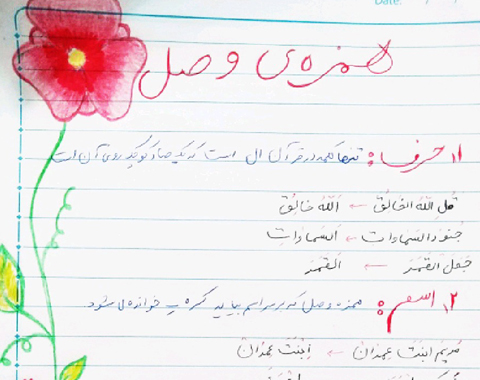 Date: / /
همزه‌ی وصل
۱. حرف: تنها کلمه در قرآن ال است که یک صاد کوچک روی آن است
قُلِ اللّٰهُ الخالِقُ ← اَللّٰهُ خالِقُ
جُنودُ السَماواتِ ← اَلسَماواتِ
جَعَلَ القَمَرَ ← اَلقَمَرَ
۲. اسم: همزه وصل که بر سر اسم بیاید کسره ـِ خوانده می شود
مریَمَ ابنَتَ عِمرانَ ← اِبنَتَ عِمرانَ